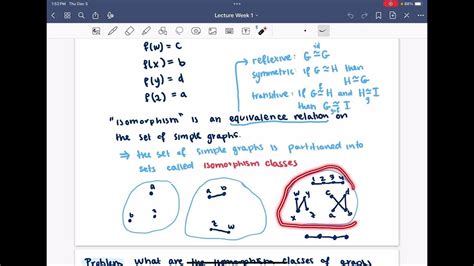 1:53 PM Thu Dec 5
Lecture Week 1
f(w) = c
f(x) = b
f(y) = d
f(z) = a
reflexive: G ≅ G
id
symmetric: if G ≅ H then
H ≅ G
transitive: if G ≅ H and H ≅ I
then G ≅ I
"isomorphism" is an equivalence relation on
the set of simple graphs.
⇒ the set of simple graphs is partitioned into
sets called isomorphism classes
a
b
a b
z w
1 2 3 4
w y
x z
c d
a b
Problem What are the isomorphism classes of graphs